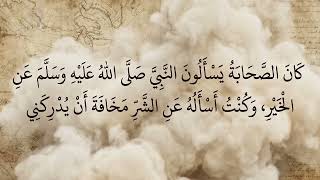 كَانَ الصَّحَابَةُ يَسْأَلُونَ النَّبِيَّ صَلَّى اللهُ عَلَيْهِ وَسَلَّمَ عَنِ
الْخَيْرِ، وَكُنْتُ أَسْأَلُهُ عَنِ الشَّرِّ مَخَافَةَ أَنْ يُدْرِكَنِي